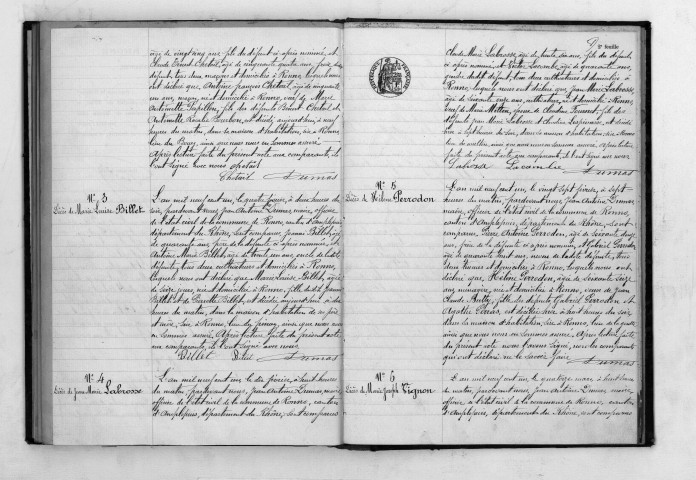 âgé de vingt cinq ans, fils du défunt ci après nommé, et
Claude Benoît Chetail, âgé de cinquante quatre ans, frère du
défunt, tous deux maçons et domiciliés à Ronno, lesquels nous
ont déclaré que Antoine François Chetail, âgé de cinquante
ans, maçon, né et domicilié à Ronno, veuf de Marie
Antoinette Papillon, fils des défunts Benoît Chetail et
Antoinette Rosalie, est décédé aujourd'hui, à neuf
heures du matin, dans la maison d'habitation, sise à Ronno,
lieu du Bourg, ainsi que nous nous en sommes assuré.
Après lecture faite du présent acte aux comparants, ils
l'ont signé avec nous.
Chetail Dumas
N° 3
Décès de Marie Louise Billet
L'an mil neuf cent un, le quatre, à deux heures du
soir, pardevant nous, Jean Antoine Dumas, maire, officier
de l'état civil de la commune de Ronno, canton d'Amplepuis,
département du Rhône, sont comparus Billet, âgé
de quarante ans, père de la défunte ci après nommée, et
Antoine Marie Billet, âgé de trente ans, oncle de la dite
défunte, tous deux cultivateurs et domiciliés à Ronno,
lesquels nous ont déclaré que Marie Louise Billet, âgée
de seize jours, née et domiciliée à Ronno, fille de dit
Billet et de Billet, est décédée aujourd'hui à dix
heures du matin, dans la maison d'habitation de son père
et sise à Ronno, lieu du, ainsi que nous nous
en sommes assuré. Après lecture faite du présent acte
aux comparants, ils l'ont signé avec nous.
Billet Billet Dumas
N° 4
Décès de Jean Marie Labrosse
L'an mil neuf cent un, le dix février, à huit heures
du matin, pardevant nous, Jean Antoine Dumas, maire
officier de l'état civil de la commune de Ronno, canton
d'Amplepuis, département du Rhône, sont comparus
2e feuille
Claude Marie Labrosse, âgé de trente six ans, fils du défunt
ci après nommé, et Lacombe, âgé de quarante ans,
gendre du dit défunt, tous deux cultivateurs et domiciliés à
Ronno, lesquels nous ont déclaré que Jean Marie Labrosse,
âgé de soixante onze ans, cultivateur, né et domicilié à Ronno,
fils des
défunts Jean Marie Labrosse et Claudine, est décédé
hier à sept heures du soir, dans la maison d'habitation, sise à Ronno
lieu de, ainsi que nous nous en sommes assuré. Après lecture
faite du présent acte aux comparants, ils l'ont signé avec nous
Labrosse Lacombe Dumas
N° 5
Décès de Hélène Perrodon
L'an mil neuf cent un, le vingt sept février, à sept
heures du matin, pardevant nous, Jean Antoine Dumas
maire, officier de l'état civil de la commune de Ronno,
canton d'Amplepuis, département du Rhône, sont
comparus, Antoine Perrodon, âgé de soixante douze
ans, frère de la défunte ci après nommée, et Gabriel Perrodon
âgé de quarante huit ans, neveu de la dite défunte, tous
deux et domiciliés à Ronno, lesquels nous ont
déclaré que, Hélène Perrodon, âgée de soixante seize
ans, ménagère, née et domiciliée à Ronno, veuve de Jean
Claude, fille des défunts Gabriel Perrodon et
Agathe, est décédée hier à huit heures du soir
dans la maison d'habitation, sise à Ronno, lieu de
ainsi que nous nous en sommes assuré. Après lecture faite
du présent acte nous l'avons signé, non les comparants
qui ont déclaré ne le savoir faire
Dumas
N° 6
Décès de Marie Joseph Vignon
L'an mil neuf cent un, le quatorze mars, à huit heures
du matin, pardevant nous, Jean Antoine Dumas, maire
officier de l'état civil de la commune de Ronno, canton
d'Amplepuis, département du Rhône, sont comparus